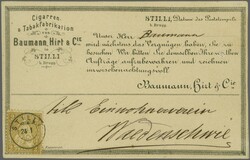 Cigarren-
& Tabakfabrikation
von
Baumann, Hirt & Cie
in
STILLI
b. Brugg
STILLI, Datum des Poststempels
b. BRUGG
Unser Herr Baumann
wird nächstens das Vergnügen haben, Sie zu
besuchen. Wir bitten Sie demselben Ihre werthen
Aufträge aufzubewahren und zeichnen
Baumann, Hirt & Cie
STILLI
Wädenschwil